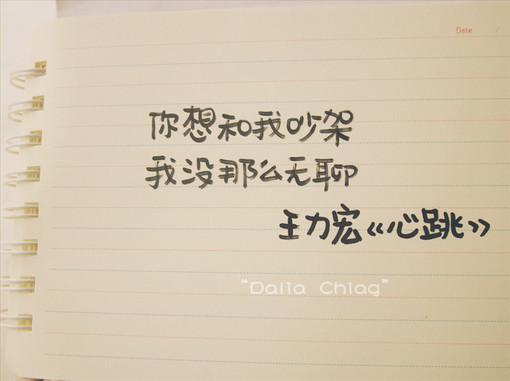 Date /
你想和我吵架
我没那么无聊
王力宏《心跳》
"Daila Chlag"